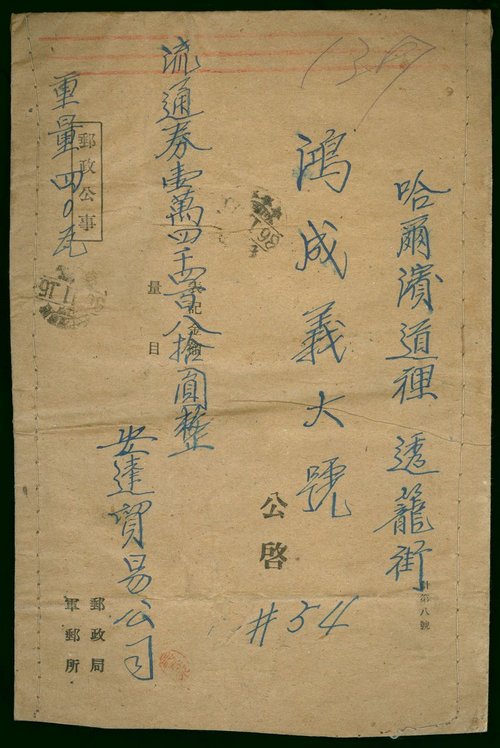 哈爾濱道裡 透籠街
#54
鴻成義大號
公啓
流通券壹萬四千四百八拾圓整
量目
安達貿易公司
郵政局
軍郵所
郵政公事
重量四〇瓦
第八號